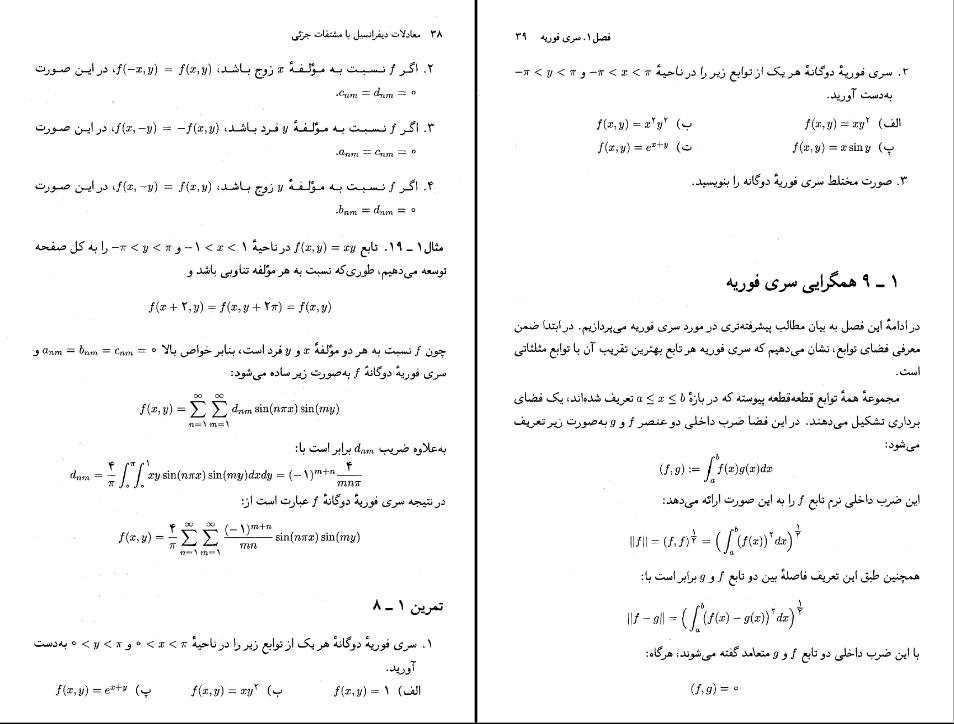 ۳۸ معادلات دیفرانسیل با مشتقات جزئی
۲. اگر f نسبت به مؤلفهٔ x زوج باشد، f(−x, y) = f(x, y)، در این صورت
c_{nm} = d_{nm} = ۰.
۳. اگر f نسبت به مؤلفهٔ y فرد باشد، f(x, −y) = −f(x, y)، در این صورت
a_{nm} = c_{nm} = ۰.
۴. اگر f نسبت به مؤلفهٔ y زوج باشد، f(x, −y) = f(x, y)، در این صورت
b_{nm} = d_{nm} = ۰.
مثال ۱ ـ ۱۹. تابع f(x, y) = xy در ناحیهٔ −۱ < x < ۱ و −π < y < π را به کل صفحه
توسعه می‌دهیم، طوری‌که نسبت به هر مؤلفه تناوبی باشد و
f(x + ۲, y) = f(x, y + ۲π) = f(x, y)
چون f نسبت به هر دو مؤلفهٔ x و y فرد است، بنابر خواص بالا a_{nm} = b_{nm} = c_{nm} = ۰ و
سری فوریهٔ دوگانهٔ f به‌صورت زیر ساده می‌شود:
f(x, y) = ∑_{n=۱}^{∞} ∑_{m=۱}^{∞} d_{nm} sin(nπx) sin(my)
به‌علاوه ضریب d_{nm} برابر است با:
d_{nm} = ۴/π ∫_۰^π ∫_۰^۱ xy sin(nπx) sin(my)dxdy = (−۱)^{m+n} ۴/(mnπ)
در نتیجه سری فوریهٔ دوگانهٔ f عبارت است از:
f(x, y) = ۴/π ∑_{n=۱}^{∞} ∑_{m=۱}^{∞} (−۱)^{m+n}/(mn) sin(nπx) sin(my)
تمرین ۱ ـ ۸
۱. سری فوریهٔ دوگانهٔ هر یک از توابع زیر را در ناحیهٔ ۰ < x < π و ۰ < y < π به‌دست
آورید.
الف) f(x, y) = ۱ ب) f(x, y) = xy^۲ پ) f(x, y) = e^{x+y}
فصل ۱. سری فوریه ۳۹
۲. سری فوریهٔ دوگانهٔ هر یک از توابع زیر را در ناحیهٔ −π < x < π و −π < y < π
به‌دست آورید.
الف) f(x, y) = xy^۲ ب) f(x, y) = x^۲y^۲
پ) f(x, y) = x sin y ت) f(x, y) = e^{x+y}
۳. صورت مختلط سری فوریهٔ دوگانه را بنویسید.
۱ ـ ۹ همگرایی سری فوریه
در ادامهٔ این فصل به بیان مطالب پیشرفته‌تری در مورد سری فوریه می‌پردازیم. در ابتدا ضمن
معرفی فضای توابع، نشان می‌دهیم که سری فوریه هر تابع بهترین تقریب آن با توابع مثلثاتی
است.
مجموعهٔ همهٔ توابع قطعه‌قطعه پیوسته که در بازهٔ a ≤ x ≤ b تعریف شده‌اند، یک فضای
برداری تشکیل می‌دهند. در این فضا ضرب داخلی دو عنصر f و g به‌صورت زیر تعریف
می‌شود:
(f, g) := ∫_a^b f(x)g(x)dx
این ضرب داخلی نرم تابع f را به این صورت ارائه می‌دهد:
||f|| = (f, f)^{۱/۲} = (∫_a^b (f(x))^۲ dx)^{۱/۲}
همچنین طبق این تعریف فاصلهٔ بین دو تابع f و g برابر است با:
||f − g|| = (∫_a^b (f(x) − g(x))^۲ dx)^{۱/۲}
با این ضرب داخلی دو تابع f و g متعامد گفته می‌شوند، هرگاه:
(f, g) = ۰